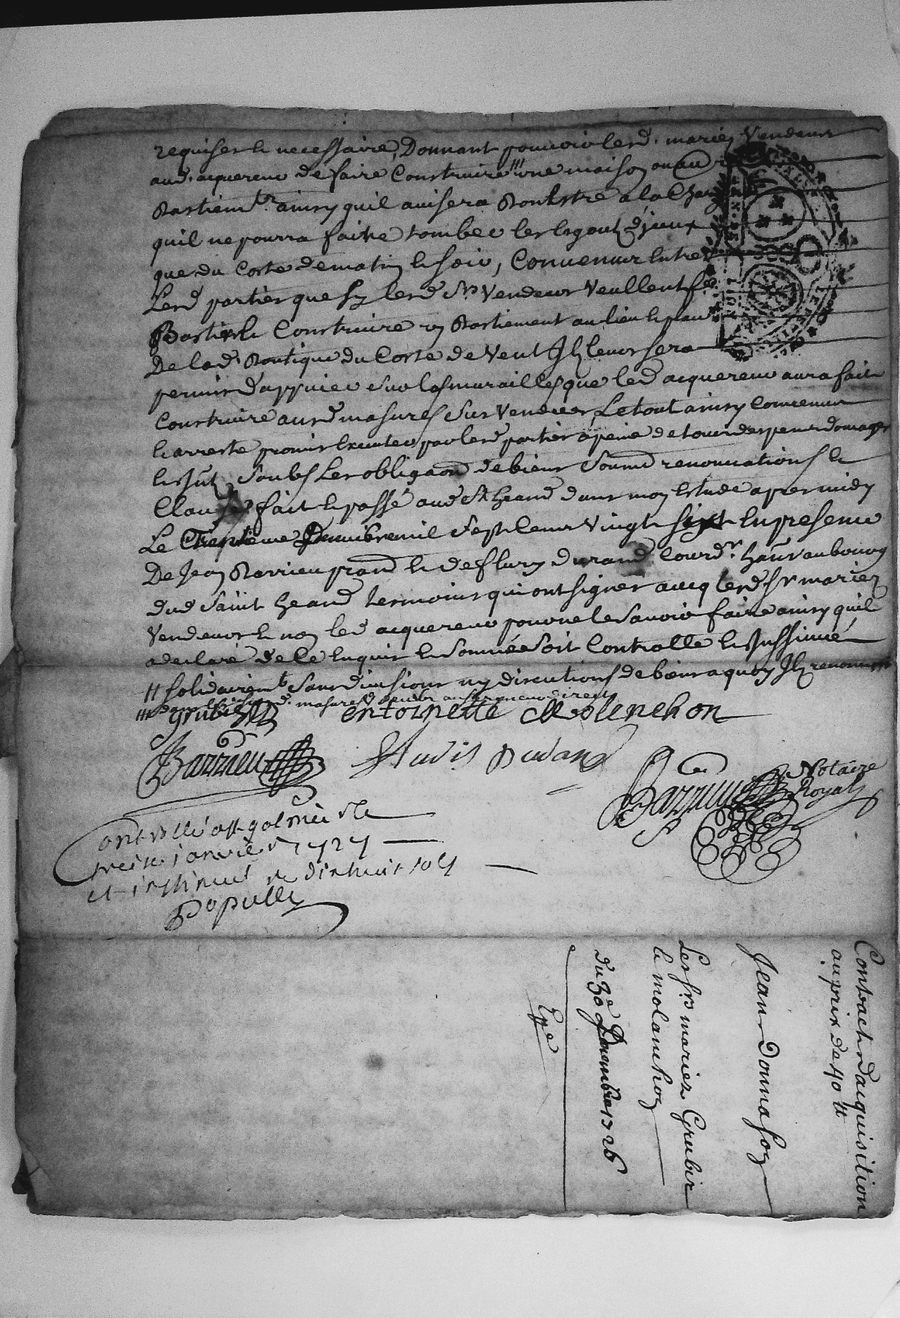 requises et necessaire, Donnant pouvoir lesd. mariez Vendeurs
aud. acquereur de faire Construire /// une maison ou au
Bastiem.t ainsy quil avisera Bon Estre a la Charge
quil ne pourra faire tomber les Esgouts dejeaux
que du Coste de matin et soir, Convenu Entre
Lesd. parties que sy lesd. Srs Vendeurs Veullent f.e
Bastir et Construire un Bastiement au lieu et place
De lad. Boutique du Coste de Vent Il leur sera
permis D'appuier sur las murailles que led. acquereur aura fait
Construire ausd. masures Sus Vendues Le tout ainsy Convenu
et arreste promis Executer par lesd. parties a peine de tous despens domages
et Int. Soubs Les obligaon de biens Soumd renonciations et
Clauses fait et passé aud. St. heand dans mon Estude apres midy
Le Trentieme Decembre mil Sept Cent Vingt Six En presence
De Jean Barrieu prand. et de fleury Durand Courd.r hauvaubourg
dud. Saint heand tesmoins qui ont signer avecq lesd. Sr mariez
Vendeurs et non led. acquereur pour ne le Savoir faire ainsy quil
a declaré de ce Enquis et Sommé Soit Controlle et Inssinué
// Solidairem.t Sans divisions ny discutions de biens a quoy Ils renoncent
/// masures
Grubis
antoinette Molenchon
Barrieu
Durand
Barrieu Notaire Royal
Controllé a St galmier le
treize janvier 1727
et insinué dixhuit sols
Populle
Contract d'acquisition
au prix de 40 tt
Jean Donnason
Les srs mariez Grubis
et molanchon
Du 30e Decembre 1726
Exe